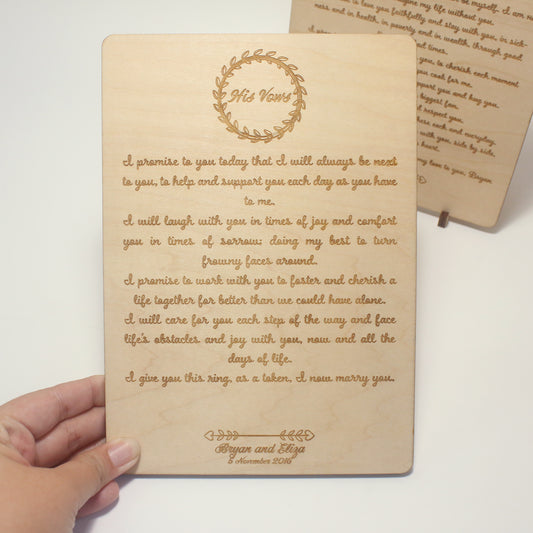 His Vows
I promise to you today that I will always be next
to you, to help and support you each day as you have
to me.
I will laugh with you in times of joy and comfort
you in times of sorrow; doing my best to turn
frowny faces around.
I promise to work with you to foster and cherish a
life together for better than we could have alone.
I will care for you each step of the way and face
life's obstacles and joy with you, now and all the
days of life.
I give you this ring, as a token, I now marry you.
Bryan and Eliza
5 November 2016
be myself. I am
imagine my life without you.
is love you faithfully and stay with you, in sick-
ness and in health, in poverty and in wealth, through good
times.
you, to cherish each moment
you cook for me.
support you and hug you.
biggest fan.
respect you.
each and everyday.
with you, side by side,
heart.
my love to you, Bryan